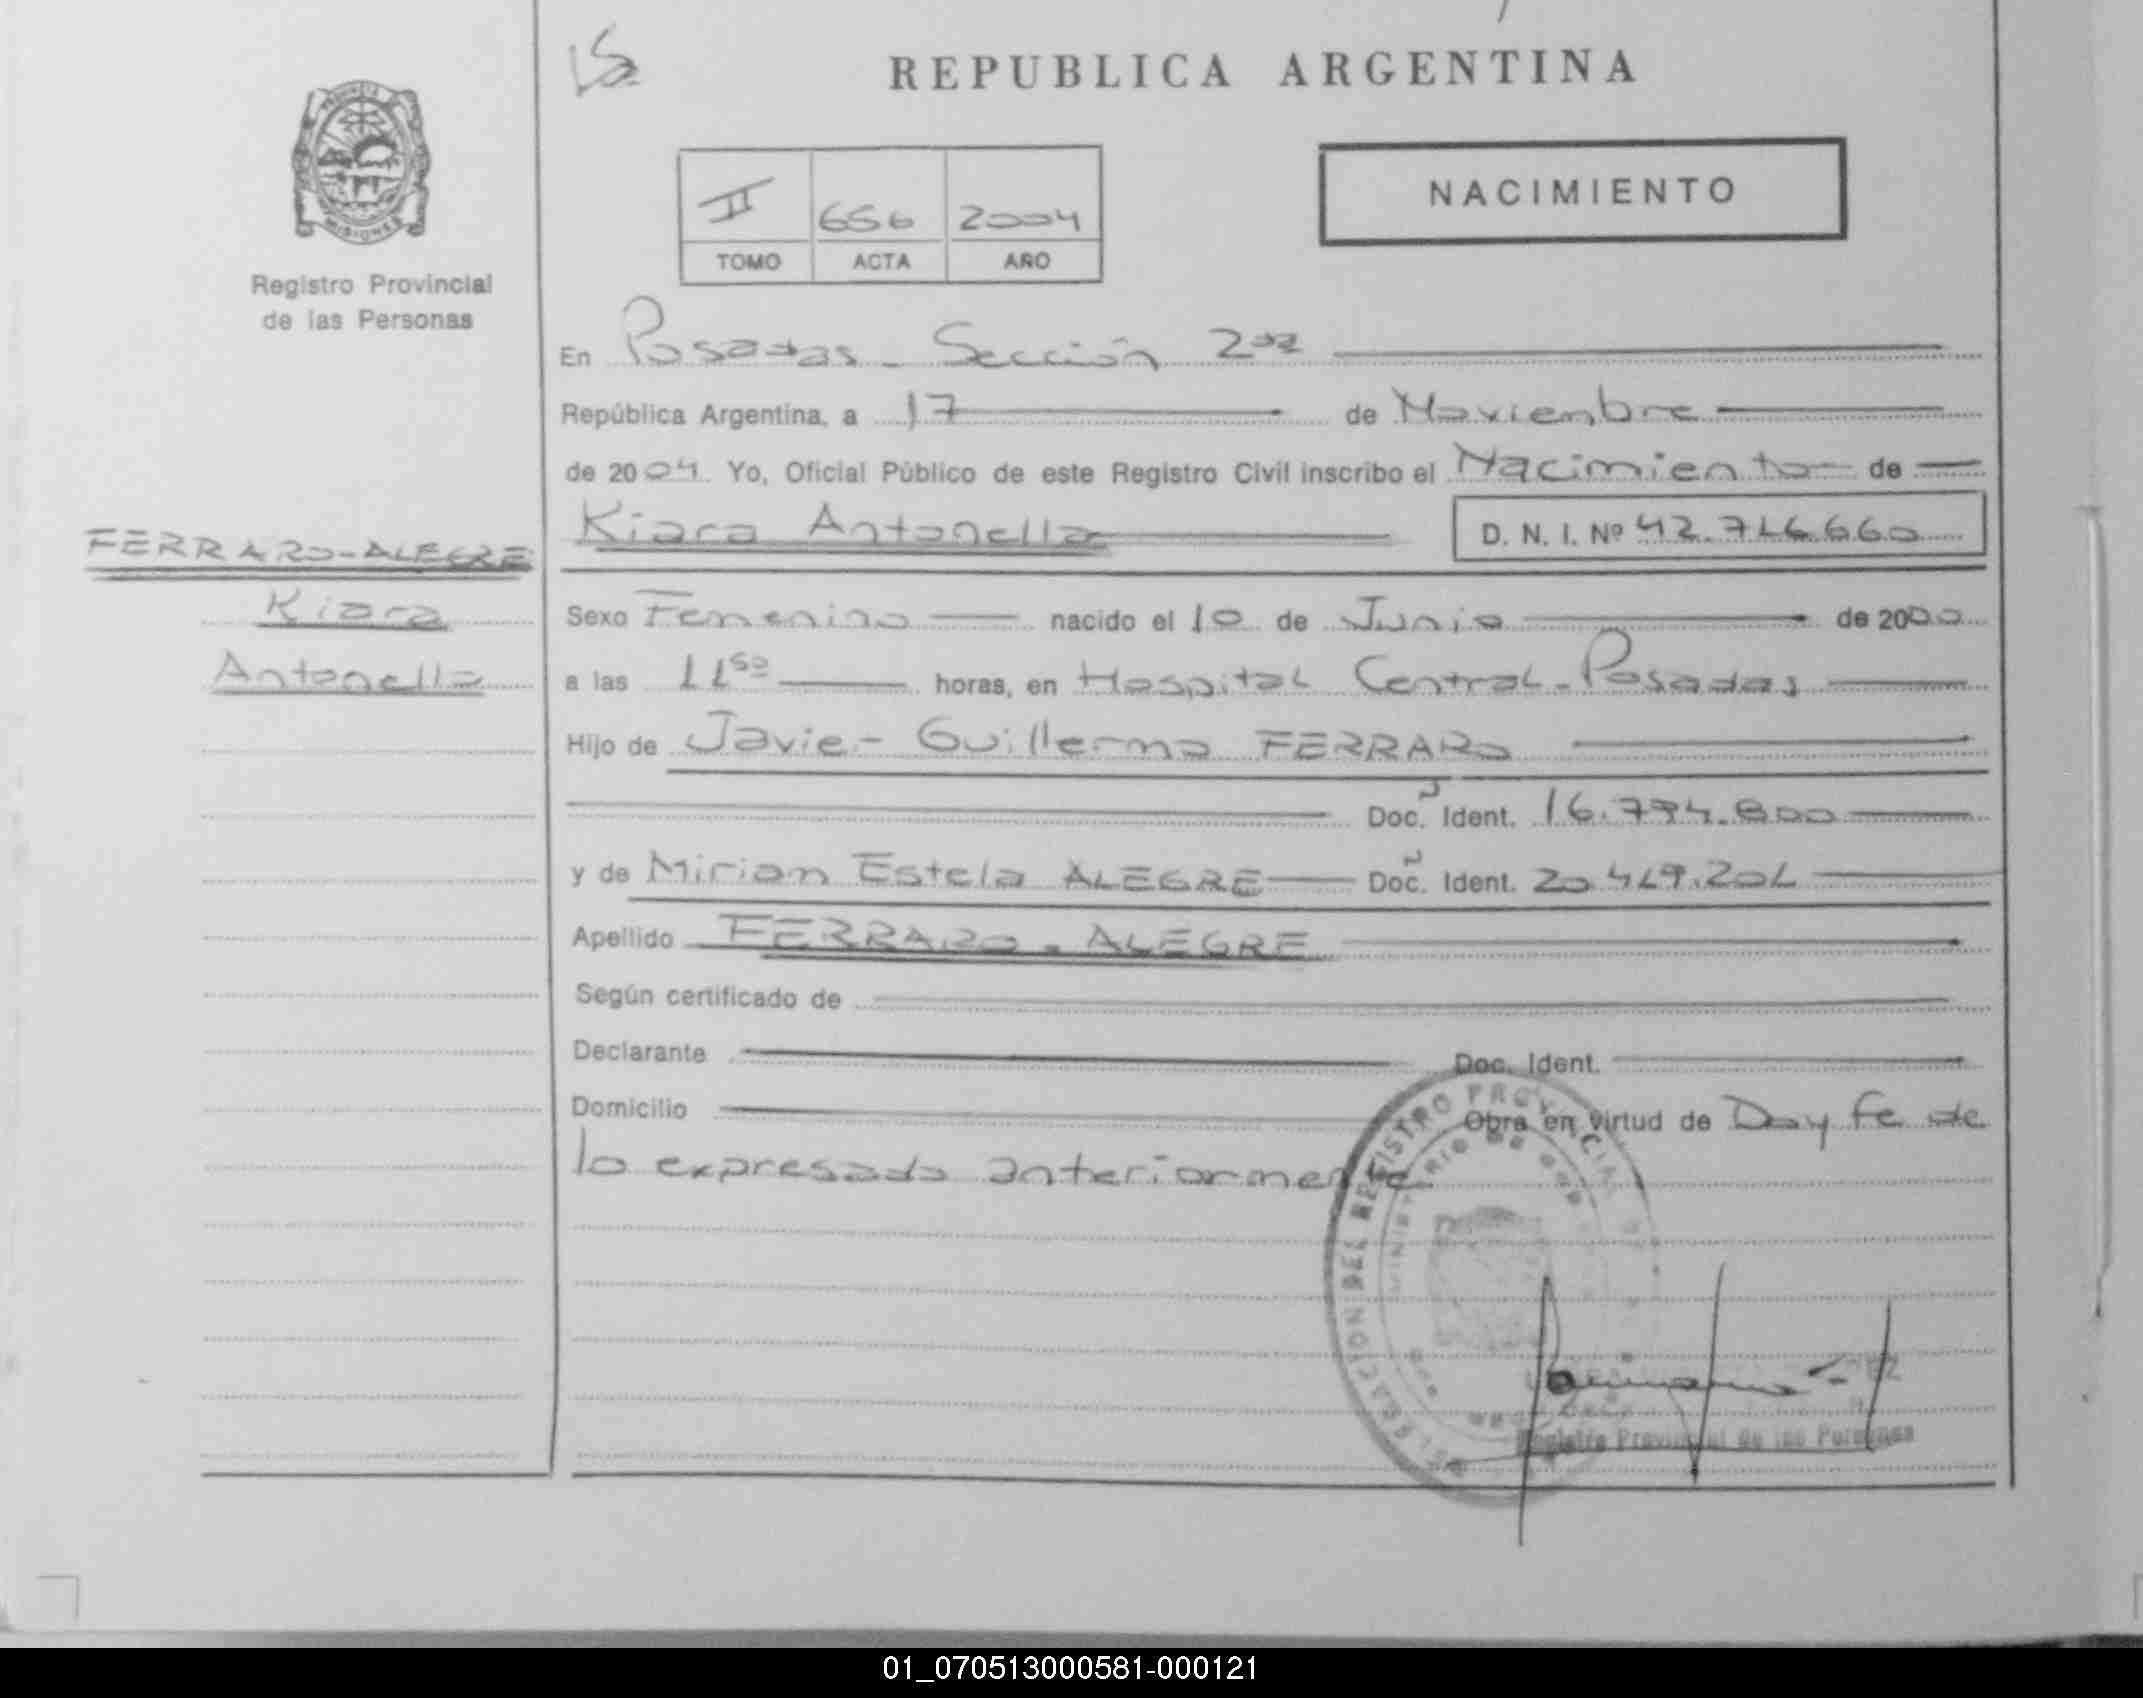 REPUBLICA ARGENTINA
PROVINCIA
MISIONES
Registro Provincial
de las Personas
II 656 2004
TOMO ACTA AÑO
NACIMIENTO
En Posadas - Sección 2da
República Argentina, a 17 de Noviembre
de 2004 Yo, Oficial Público de este Registro Civil inscribo el Nacimiento de
Kiara Antonella D. N. I. Nº 42.716.660
FERRARO-ALEGRE
Kiara
Antonella
Sexo Femenino nacido el 10 de Junio de 2000
a las 11 50 horas, en Hospital Central - Posadas
Hijo de Javier Guillermo FERRARO
Doc. Ident. 16.774.800
y de Mirian Estela ALEGRE Doc. Ident. 20.419.201
Apellido FERRARO - ALEGRE
Según certificado de
Declarante Doc. Ident.
Domicilio Obra en virtud de Doy fe de
lo expresado anteriormente.
DEL REGISTRO PROVINCIAL
MINISTERIO DE GOB
Registro Provincial de las Personas
01_070513000581-000121